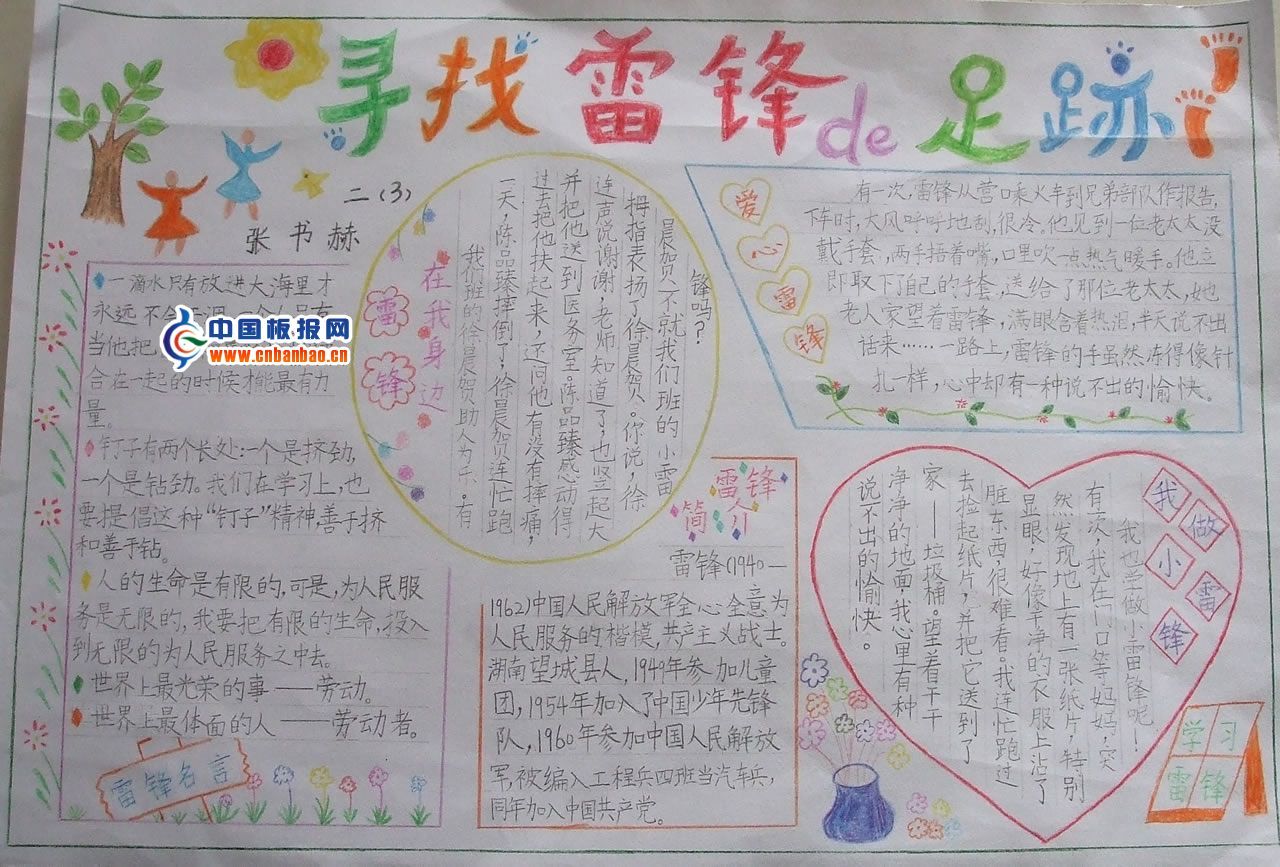 寻找雷锋de足迹
二(3)
张书赫
一滴水只有放进大海里才
永远不会干涸,一个人只有
当他把
合在一起的时候才能最有力
量。
钉子有两个长处:一个是挤劲,
一个是钻劲。我们在学习上,也
要提倡这种“钉子”精神,善于挤
和善于钻。
人的生命是有限的,可是,为人民服
务是无限的,我要把有限的生命,投入
到无限的为人民服务之中去。
世界上最光荣的事——劳动。
世界上最体面的人——劳动者。
雷锋名言
中国板报网
www.cnbanbao.cn
在我身边
雷锋
我们班的徐晨贺助人为乐。有
一天,陈品臻摔倒了,徐晨贺连忙跑
过去把他扶起来,还问他有没有摔痛,
并把他送到医务室。陈品臻感动得
连声说谢谢,老师知道了,也竖起大
拇指表扬了徐晨贺。你说,徐
晨贺不就我们班的小雷
锋吗?
爱心雷锋
有一次,雷锋从营口乘火车到兄弟部队作报告,
下车时,大风呼呼地刮,很冷。他见到一位老太太没
戴手套,两手捂着嘴,口里吹一点热气暖手。他立
即取下了自己的手套,送给了那位老太太,她
老人家望着雷锋,满眼含着热泪,半天说不出
话来……一路上,雷锋的手虽然冻得像针
扎一样,心中却有一种说不出的愉快。
雷锋
简介
雷锋(1940—
1962)中国人民解放军全心全意为
人民服务的楷模,共产主义战士。
湖南望城县人,1940年参加儿童
团,1954年加入了中国少年先锋
队,1960年参加中国人民解放
军,被编入工程兵四班当汽车兵,
同年加入中国共产党。
我做小雷锋
我也学做小雷锋呢!
有一次,我在门口等妈妈,突
然发现地上有一张纸片,特别
显眼,好像干净的衣服上沾了
脏东西,很难看。我连忙跑过
去捡起纸片,并把它送到了
家——垃圾桶。望着干干
净净的地面,我心里有种
说不出的愉快。
学习
雷锋